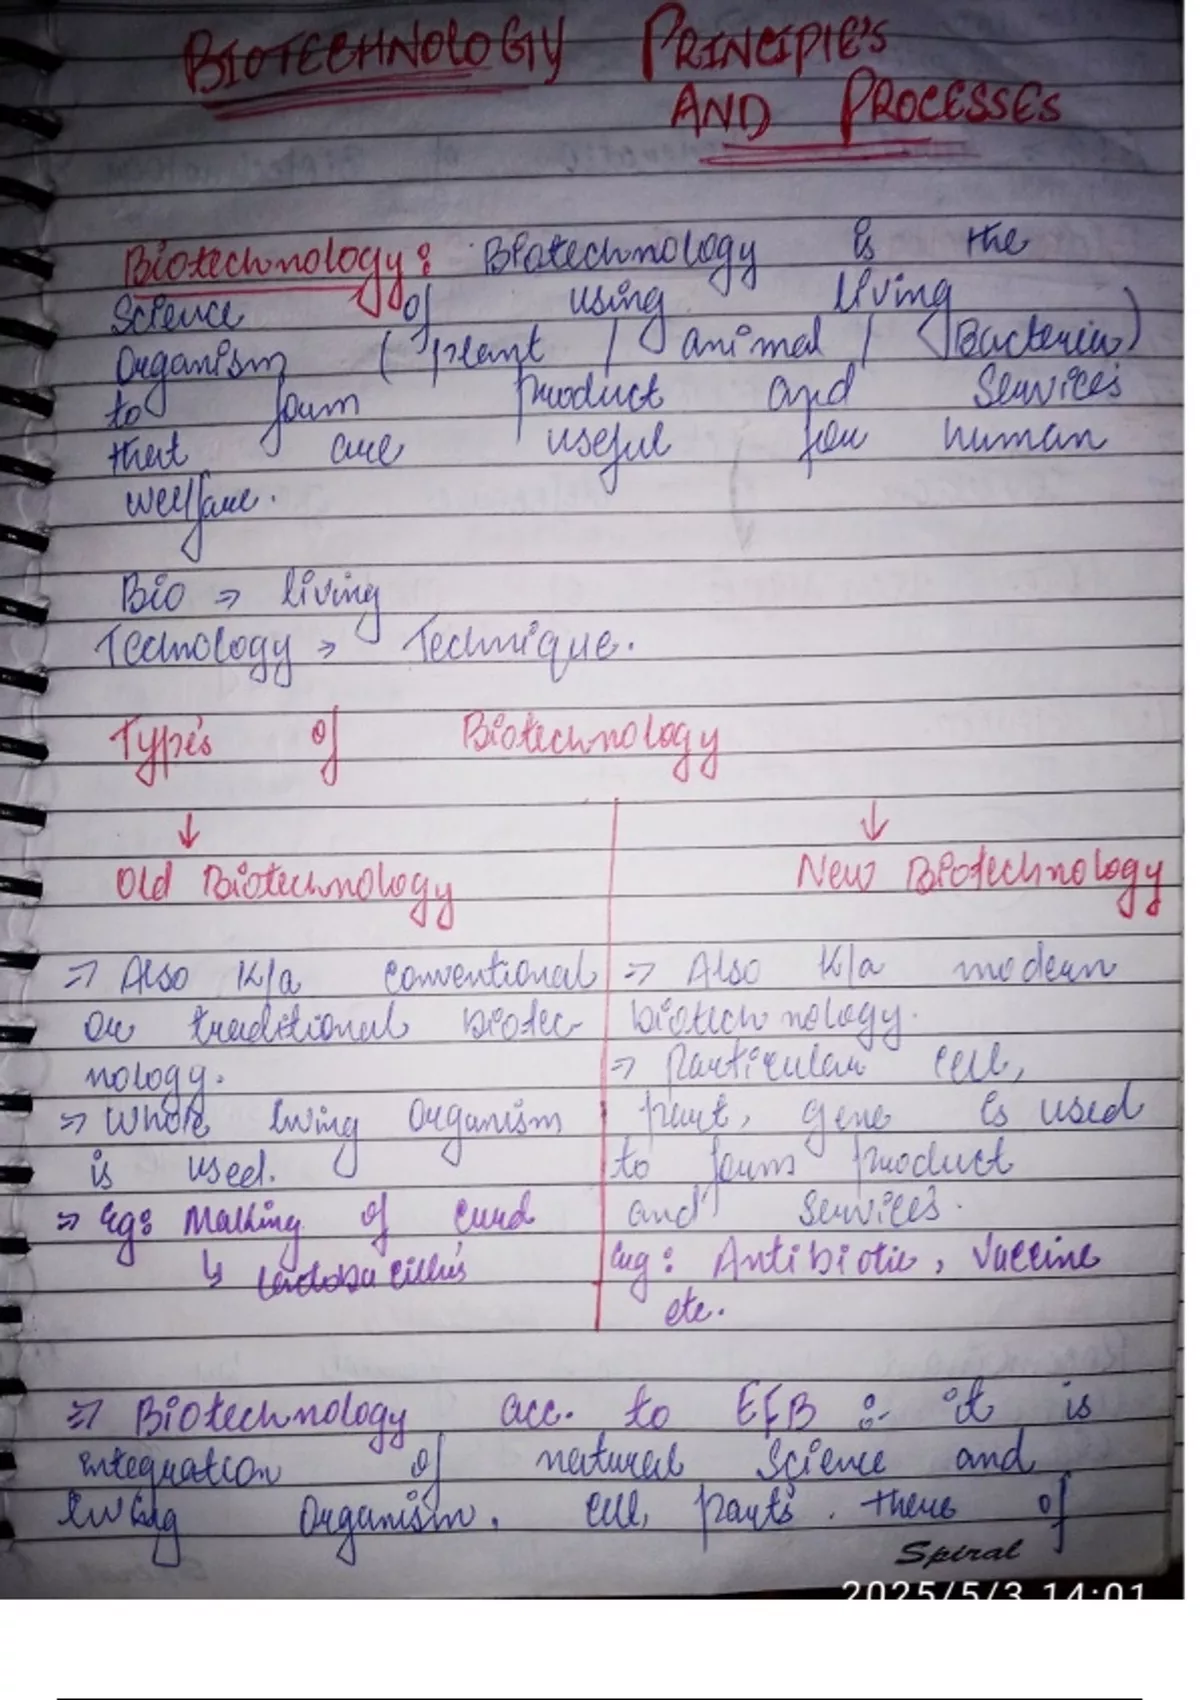 BIOTECHNOLOGY PRINCIPLE'S
AND PROCESSES
Biotechnology: Biotechnology is the
Science of using living
Organism (plant / animal / Bacteria)
to form product and Services
that are useful for human
welfare.
Bio ⇒ living
Technology > Technique.
Types of Biotechnology
↓ ↓
Old Biotechnology
New Biotechnology
⇒ Also K/a conventional
or traditional biotec-
nology.
⇒ Whole living Organism
is used.
⇒ Eg: Making of curd
↳ Lactobacillus
⇒ Also K/a modern
biotechnology.
⇒ Particular cell,
part, gene is used
to form product
and services.
Eg: Antibiotic, Vaccine
etc.
⇒ Biotechnology acc. to EFB :- it is
integration of natural Science and
living Organism, cell, parts. there of
Spiral
2025/5/3 14:01